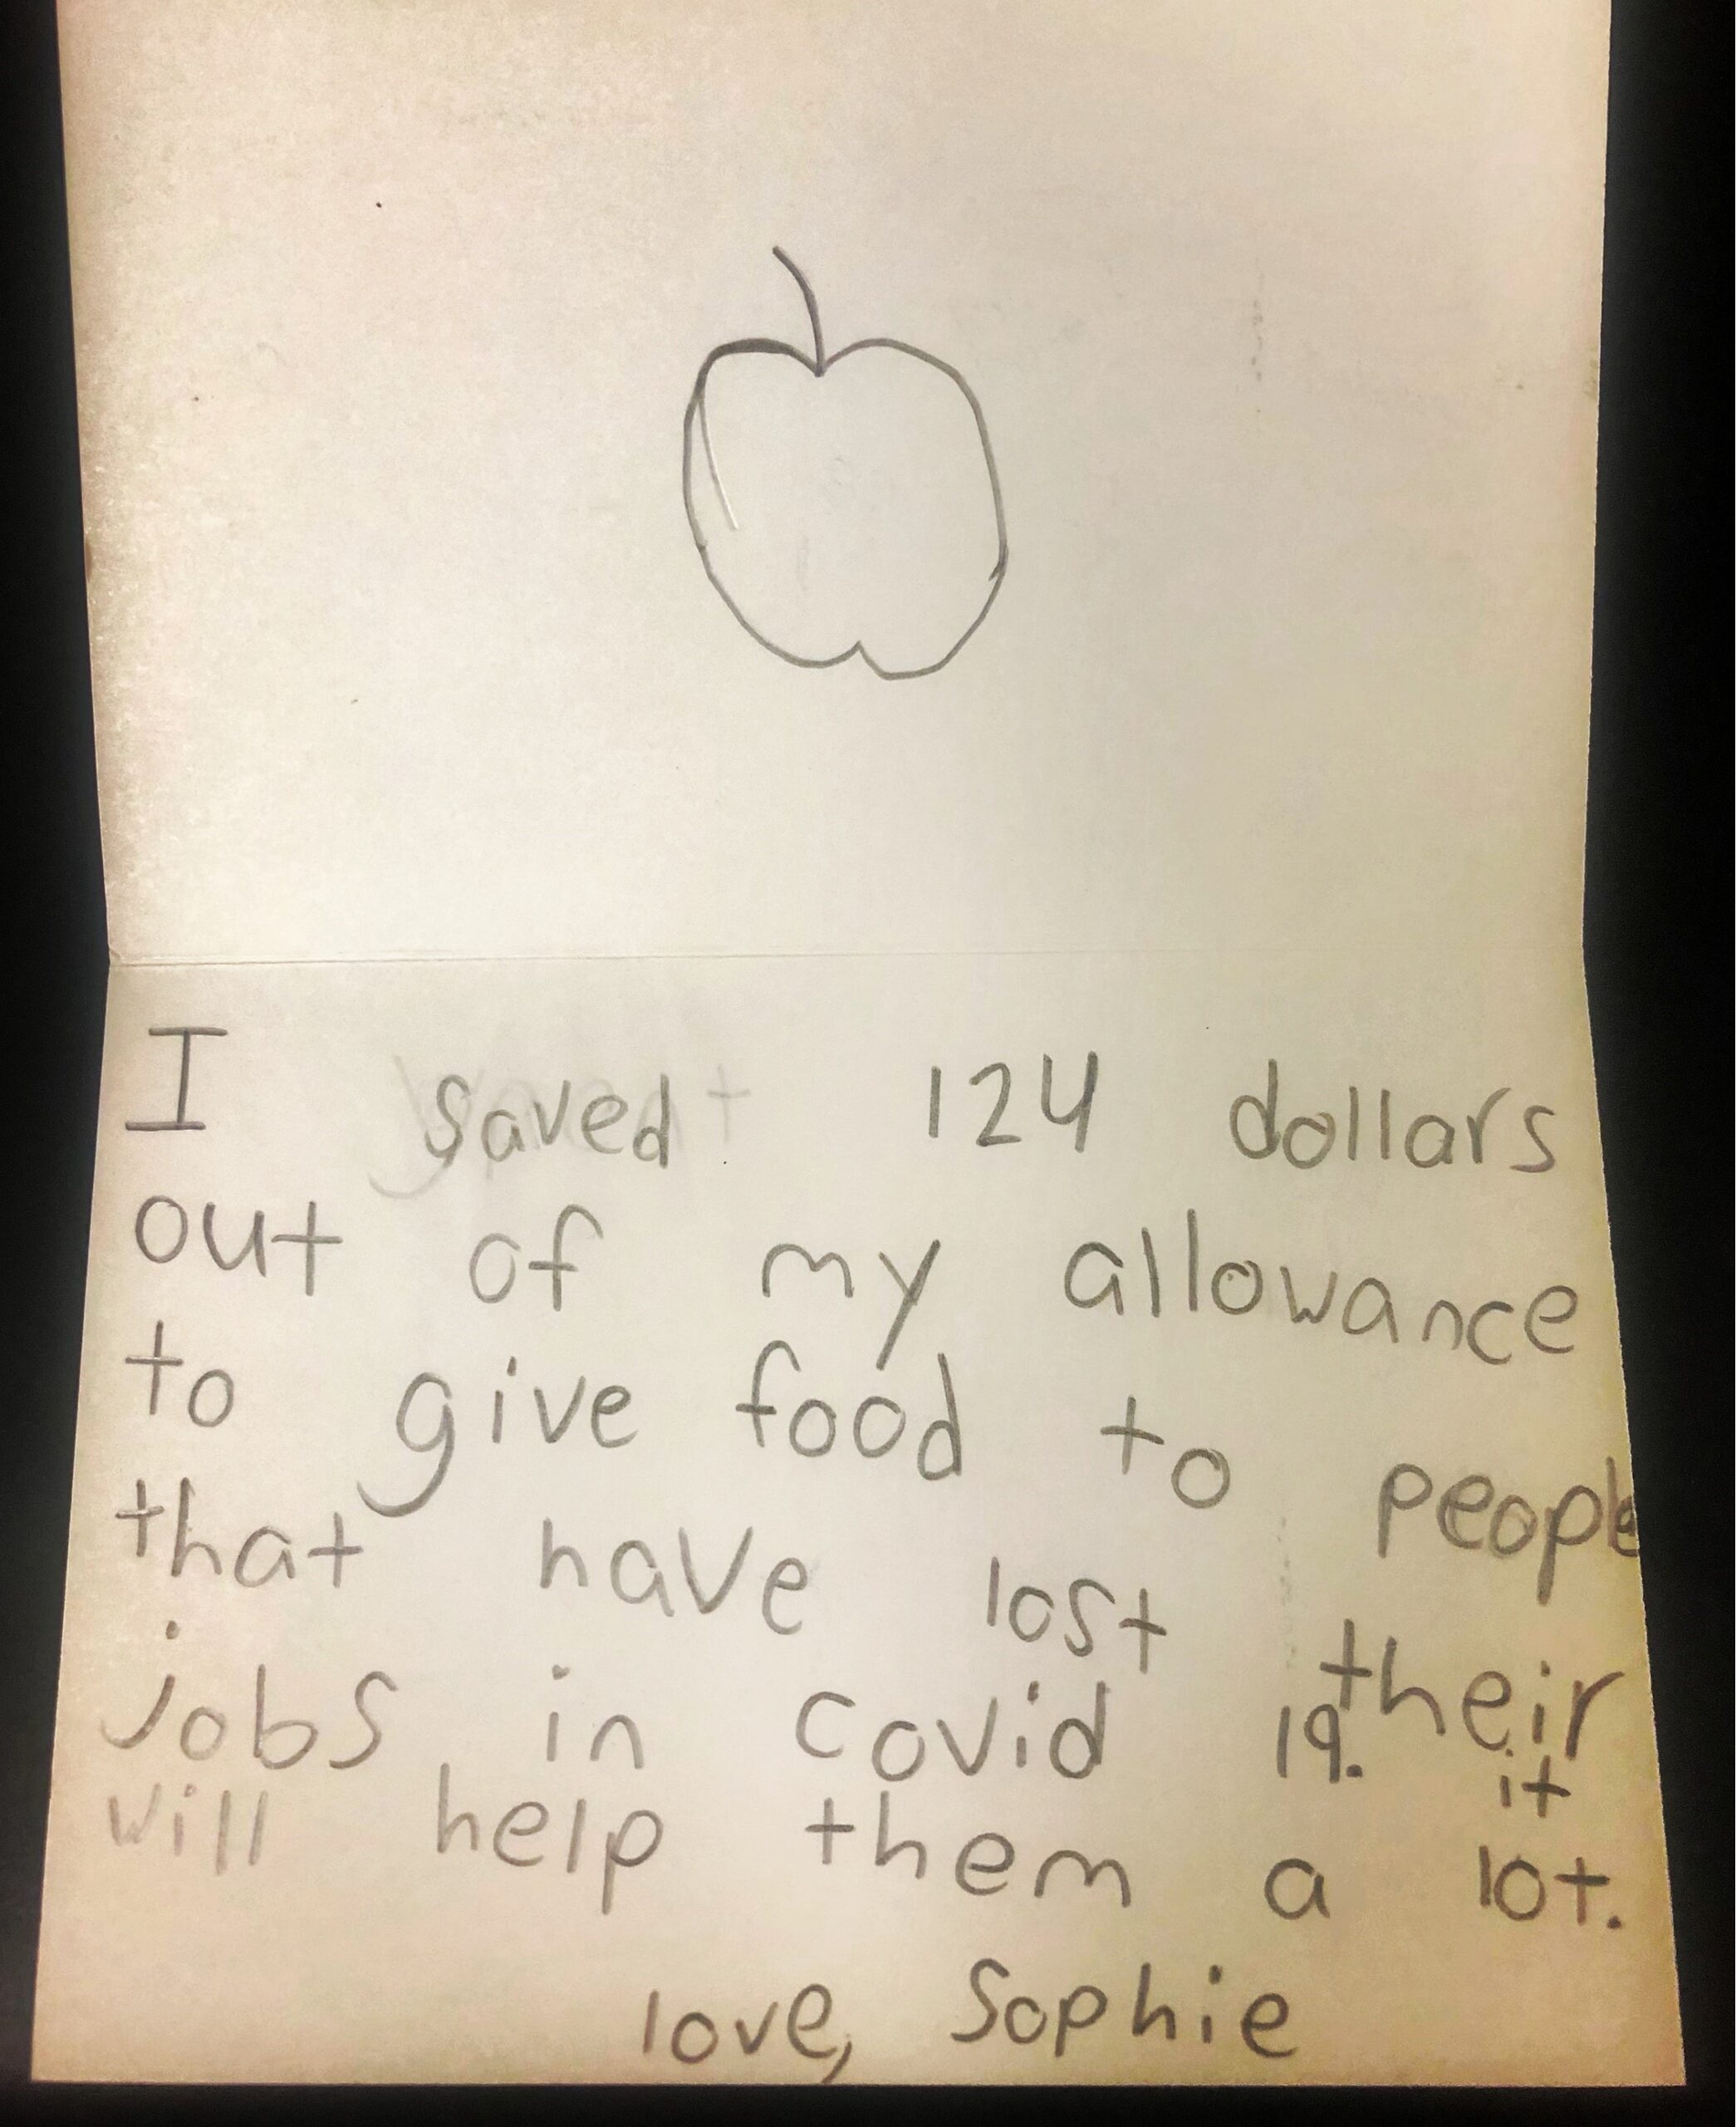 I saved 124 dollars
out of my allowance
to give food to people
that have lost their
jobs in covid 19. it
will help them a lot.
love, Sophie